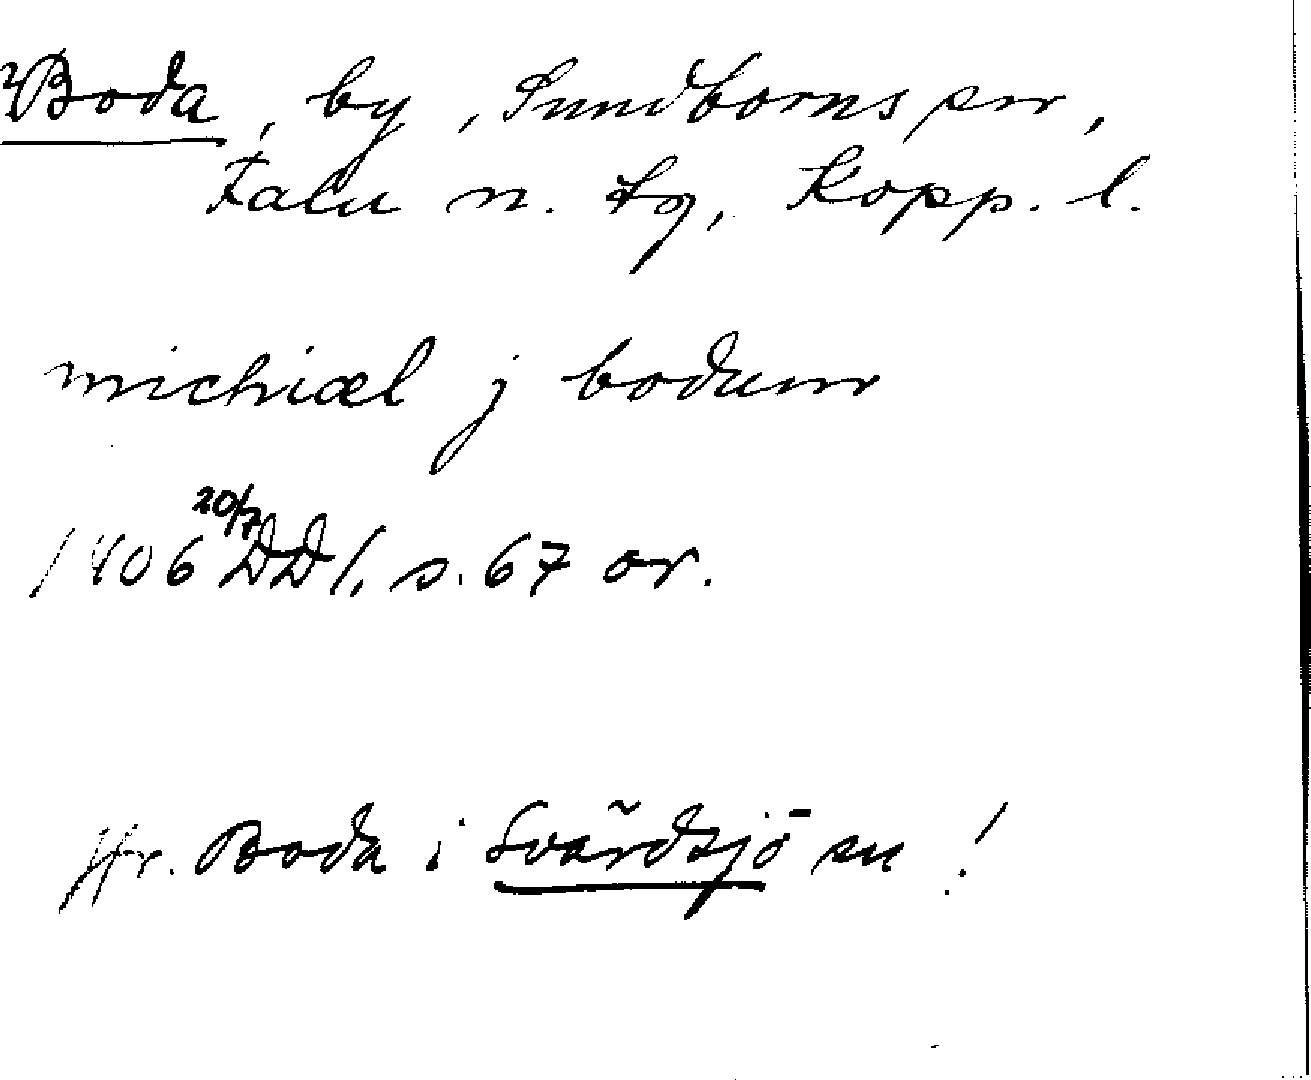 ²Boda, by, Sundborns sn,
Falu n. tg, Kopp. l.
michiæl j bodum
1406 20/7 DD 1, s. 67 or.
Jfr. Boda i Svärdsjö sn!